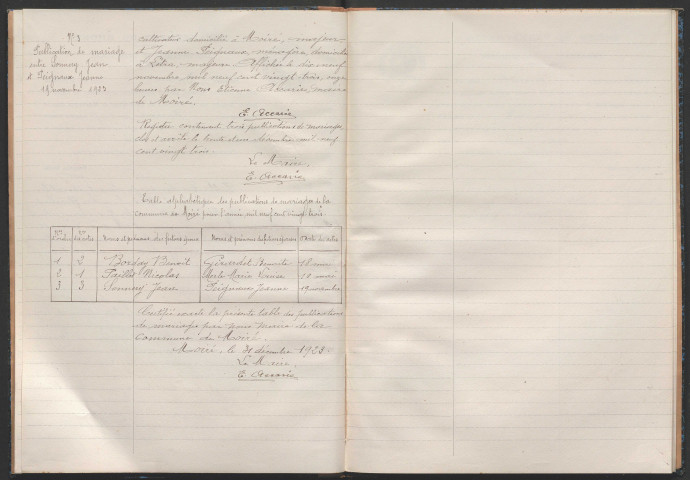 N° 3
Publication de mariage
entre Sonnery Jean
et Peigneaux Jeanne
19 novembre 1923
cultivateur domicilié à Moiré, majeur
et Jeanne Peigneaux, ménagère, domiciliée
à Létra, majeure Affichée le dix neuf
novembre mil neuf cent vingt trois,
heures par Nous Etienne Accarie, maire
de Moiré.
E. Accarie
Registre contenant trois publications de mariage
clos et arrêté le trente et un décembre mil neuf
cent vingt trois.
Le Maire,
E. Accarie
Table alphabétique des publications de mariages de la
commune de Moiré pour l'année mil neuf cent vingt trois
Nos d'ordre Nos des actes Noms et prénoms des futurs époux Noms et prénoms des futures épouses Date des actes
1 2 Benoit Benoite 18
2 1 Paillet Nicolas Marie 18
3 3 Sonnery Jean Peigneaux Jeanne 19 novembre
Certifié exacte la présente table des publications
de mariage par nous Maire de la
commune de Moiré.
Moiré, le 31 décembre 1923.
Le Maire,
E. Accarie